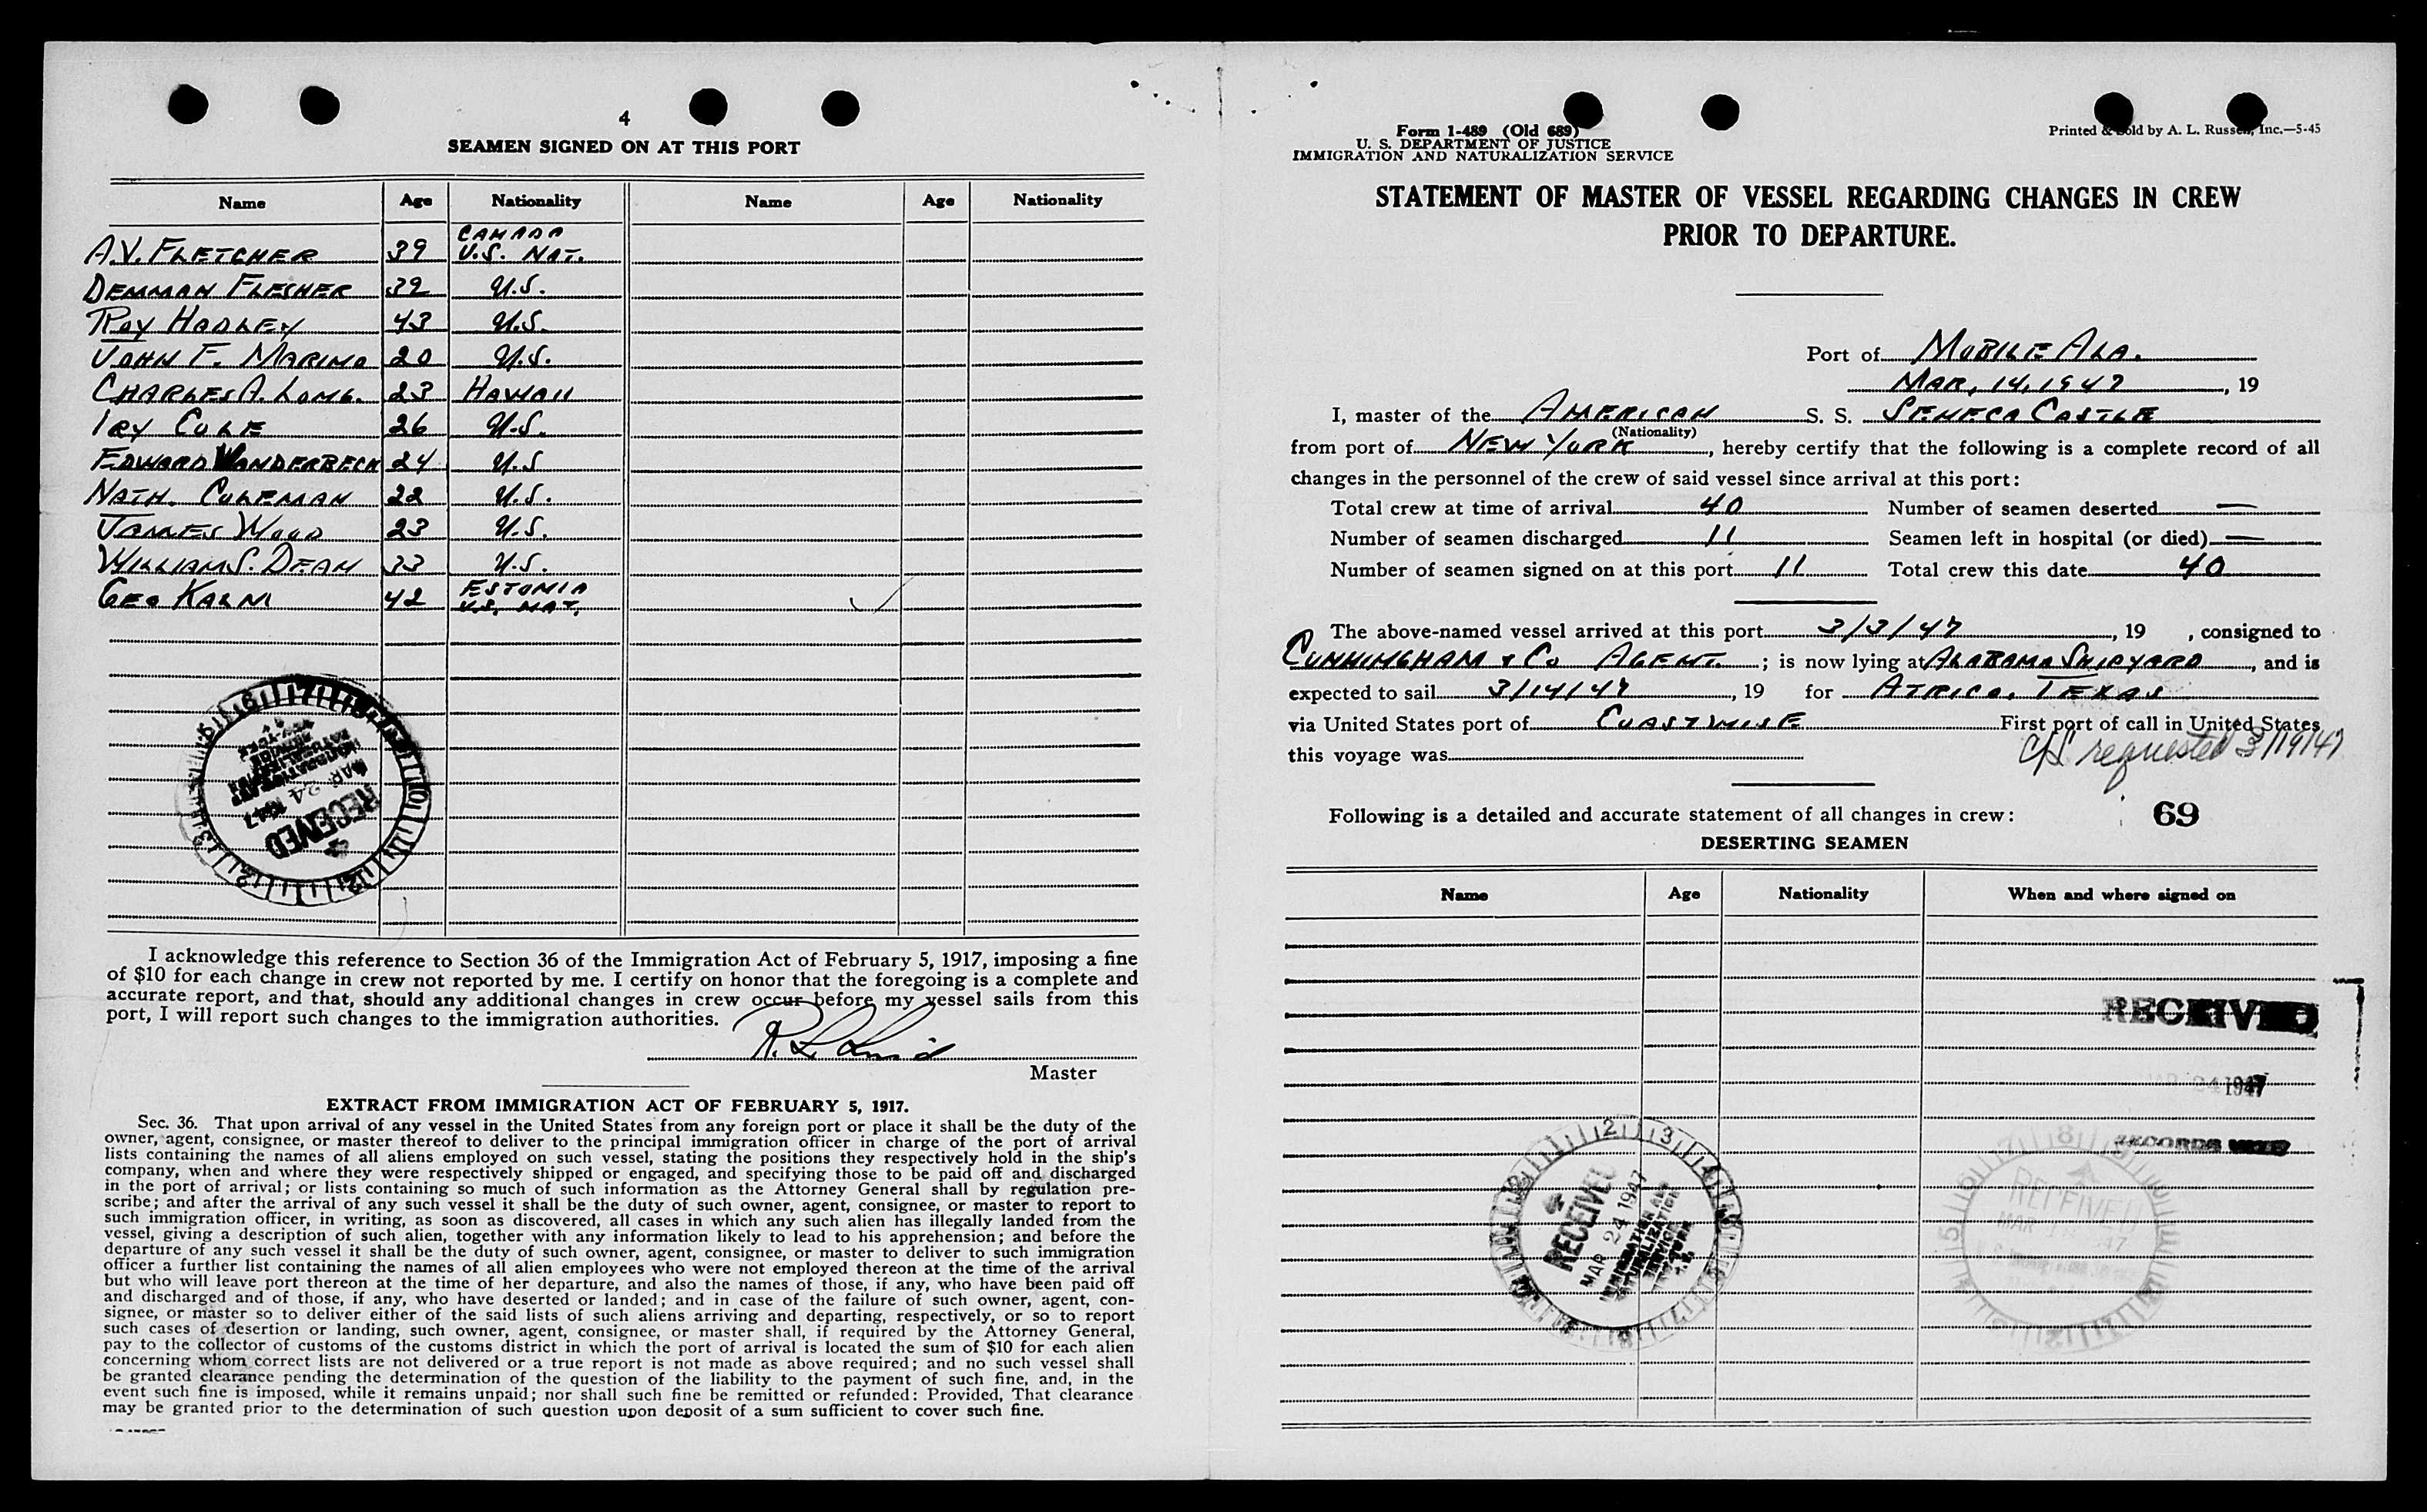 4
SEAMEN SIGNED ON AT THIS PORT
Name Age Nationality Name Age Nationality
CANADA
A.V. FLETCHER 39 U.S. NAT.
DENMAN FLESHER 39 U.S.
ROY HADLEY 43 U.S.
JOHN F. MARINO 20 U.S.
CHARLES A. LONG. 23 HAWAII
IRY COLE 26 U.S.
EDWARD VANDERBECK 24 U.S
NATH. COLEMAN 22 U.S.
JAMES WOOD 23 U.S.
WILLIAM S. DEAN 33 U.S.
ESTONIA
GEO KARNI 42 U.S. NAT.
RECEIVED
MAR 24 1947
I acknowledge this reference to Section 36 of the Immigration Act of February 5, 1917, imposing a fine
of $10 for each change in crew not reported by me. I certify on honor that the foregoing is a complete and
accurate report, and that, should any additional changes in crew occur before my vessel sails from this
port, I will report such changes to the immigration authorities.
Master
EXTRACT FROM IMMIGRATION ACT OF FEBRUARY 5, 1917.
Sec. 36. That upon arrival of any vessel in the United States from any foreign port or place it shall be the duty of the
owner, agent, consignee, or master thereof to deliver to the principal immigration officer in charge of the port of arrival
lists containing the names of all aliens employed on such vessel, stating the positions they respectively hold in the ship's
company, when and where they were respectively shipped or engaged, and specifying those to be paid off and discharged
in the port of arrival; or lists containing so much of such information as the Attorney General shall by regulation pre-
scribe; and after the arrival of any such vessel it shall be the duty of such owner, agent, consignee, or master to report to
such immigration officer, in writing, as soon as discovered, all cases in which any such alien has illegally landed from the
vessel, giving a description of such alien, together with any information likely to lead to his apprehension; and before the
departure of any such vessel it shall be the duty of such owner, agent, consignee, or master to deliver to such immigration
officer a further list containing the names of all alien employees who were not employed thereon at the time of the arrival
but who will leave port thereon at the time of her departure, and also the names of those, if any, who have been paid off
and discharged and of those, if any, who have deserted or landed; and in case of the failure of such owner, agent, con-
signee, or master so to deliver either of the said lists of such aliens arriving and departing, respectively, or so to report
such cases of desertion or landing, such owner, agent, consignee, or master shall, if required by the Attorney General,
pay to the collector of customs of the customs district in which the port of arrival is located the sum of $10 for each alien
concerning whom correct lists are not delivered or a true report is not made as above required; and no such vessel shall
be granted clearance pending the determination of the question of the liability to the payment of such fine, and, in the
event such fine is imposed, while it remains unpaid; nor shall such fine be remitted or refunded: Provided, That clearance
may be granted prior to the determination of such question upon deposit of a sum sufficient to cover such fine.
Form 1-489 (Old 689)
U. S. DEPARTMENT OF JUSTICE
IMMIGRATION AND NATURALIZATION SERVICE
Printed & Sold by A. L. Russell, Inc.—5-45
STATEMENT OF MASTER OF VESSEL REGARDING CHANGES IN CREW
PRIOR TO DEPARTURE.
Port of MOBILE ALA.
MAR, 14, 1947, 19
I, master of the AMERICAN S. S. SENECA CASTLE
(Nationality)
from port of NEW YORK, hereby certify that the following is a complete record of all
changes in the personnel of the crew of said vessel since arrival at this port:
Total crew at time of arrival 40 Number of seamen deserted —
Number of seamen discharged 11 Seamen left in hospital (or died) —
Number of seamen signed on at this port 11 Total crew this date 40
The above-named vessel arrived at this port 3/3/47, 19 , consigned to
CUNNINGHAM & CO AGENT. ; is now lying at ALABAMA SHIPYARD, and is
expected to sail 3/14/47, 19 for ATRICO, TEXAS
via United States port of COASTWISE First port of call in United States
this voyage was
C/L requested 3/19/47
Following is a detailed and accurate statement of all changes in crew: 69
DESERTING SEAMEN
Name Age Nationality When and where signed on
RECEIVED
24 1947
RECORDS
RECEIVED
MAR 24 1947
IMMIGRATION AND
NATURALIZATION
SERVICE
RECEIVED
MAR